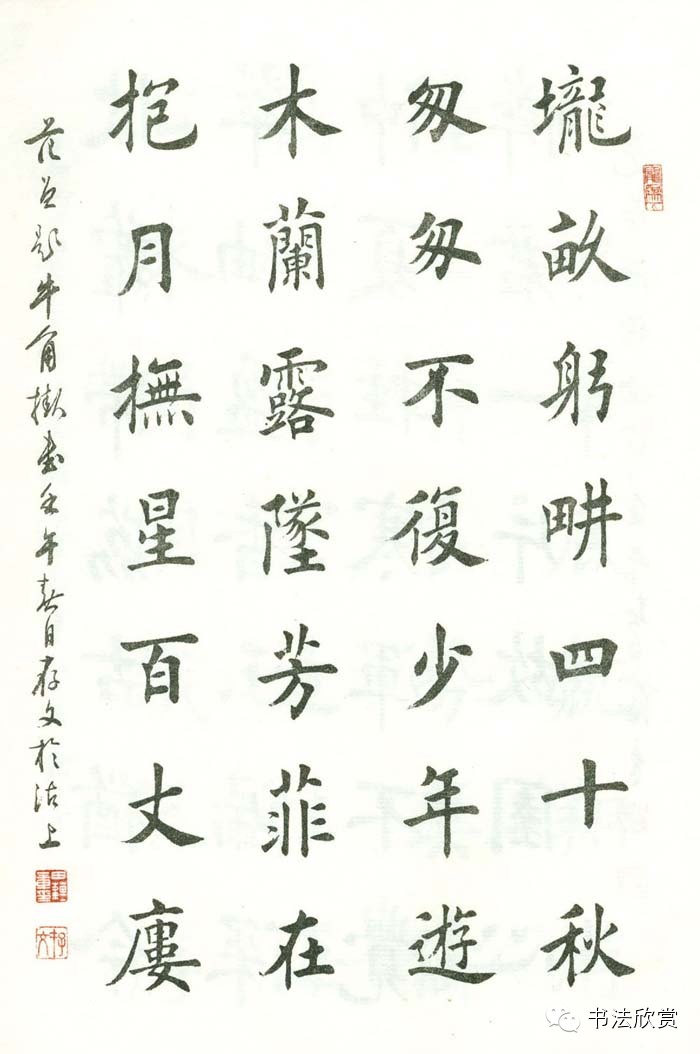 壠畝躬畊四十秋
匆匆不復少年遊
木蘭露墜芳菲在
抱月橅星百丈廔
范曾题牛角掛書壬午春日存文於沽上
书法欣赏